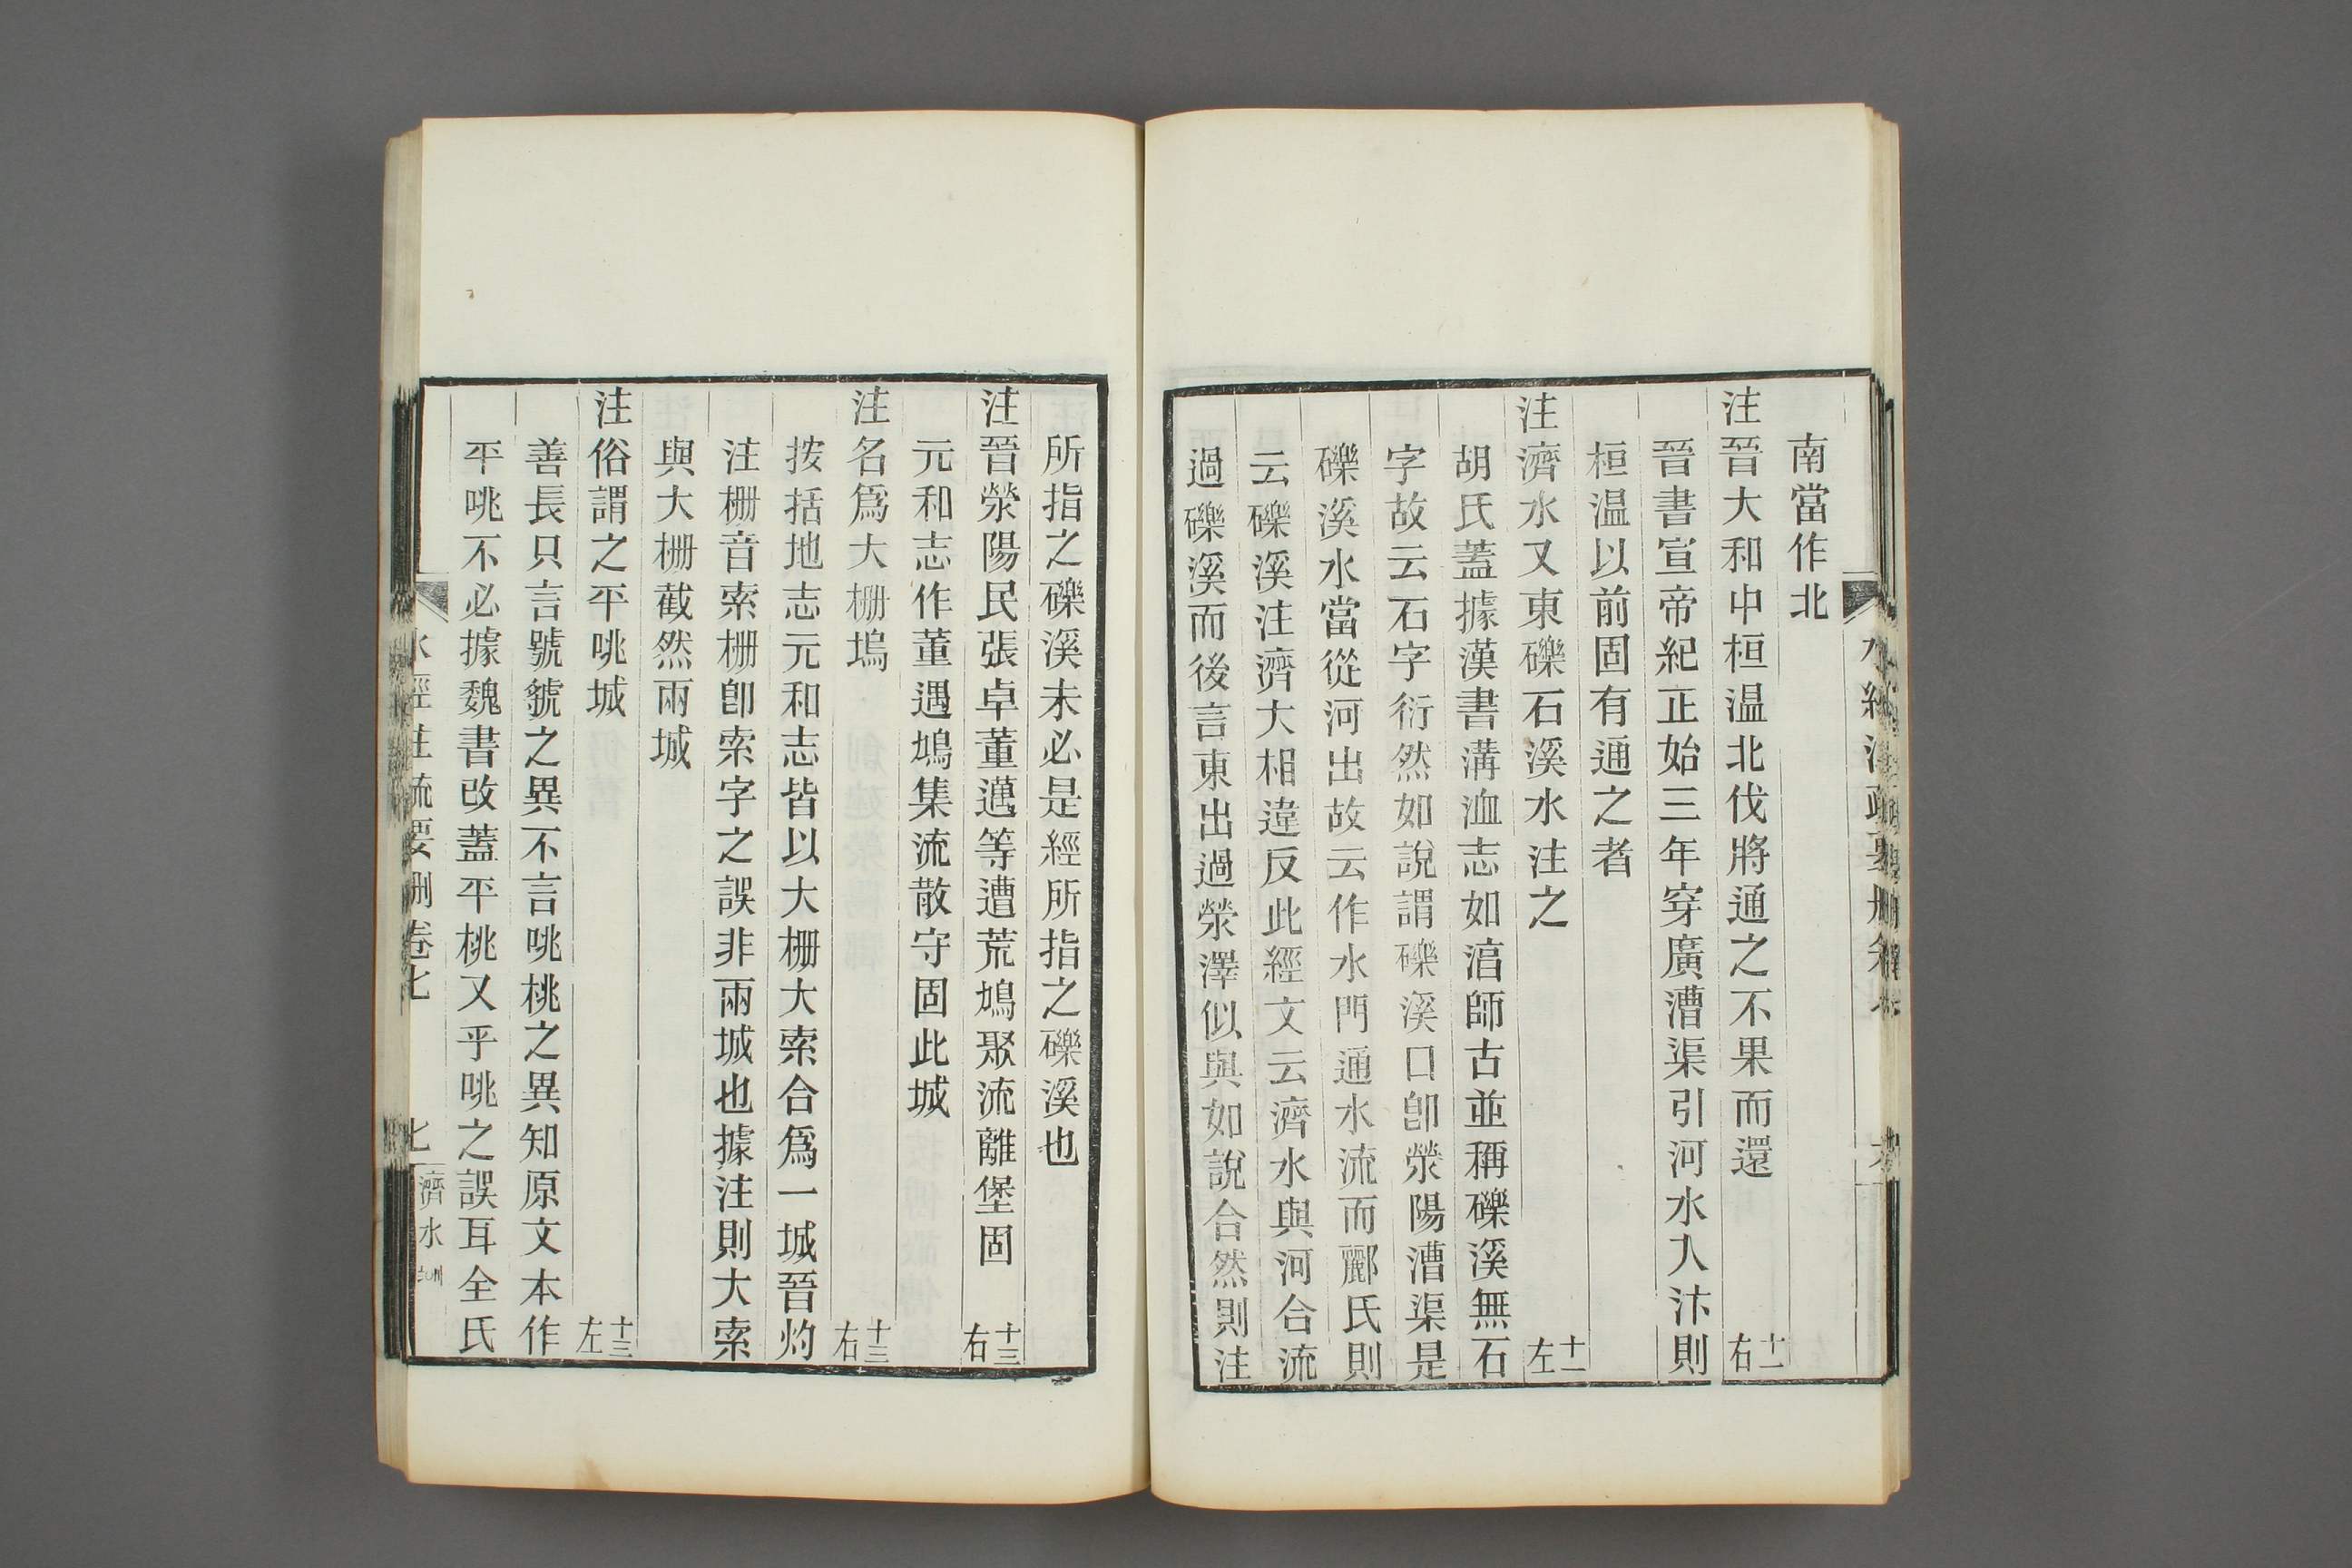 南當作北
注晉大和中桓温北伐將通之不果而還 十一右
晉書宣帝紀正始三年穿廣漕渠引河水入汴則
桓温以前固有通之者
注濟水又東礫石溪水注之 十一左
胡氏蓋據漢書溝洫志如湻師古並稱礫溪無石
字故云石字衍然如說謂礫溪口卽滎陽漕渠是
礫溪水當從河出故云作水門通水流而酈氏則
云礫溪注濟大相違反此經文云濟水與河合流
過礫溪而後言東出過滎澤似與如說合然則注
所指之礫溪未必是經所指之礫溪也
注晉滎陽民張卓董邁等遭荒鳩聚流離堡固 十三右
元和志作董遇塢集流散守固此城
注名爲大栅塢 十三右
按括地志元和志皆以大栅大索合爲一城晉灼
注栅音索栅卽索字之誤非兩城也據注則大索
與大栅截然兩城
注俗謂之平咷城 十三左
善長只言號虢之異不言咷桃之異知原文本作
平咷不必據魏書改蓋平桃又乎咷之誤耳全氏
水經注疏要刪卷七 七 濟水